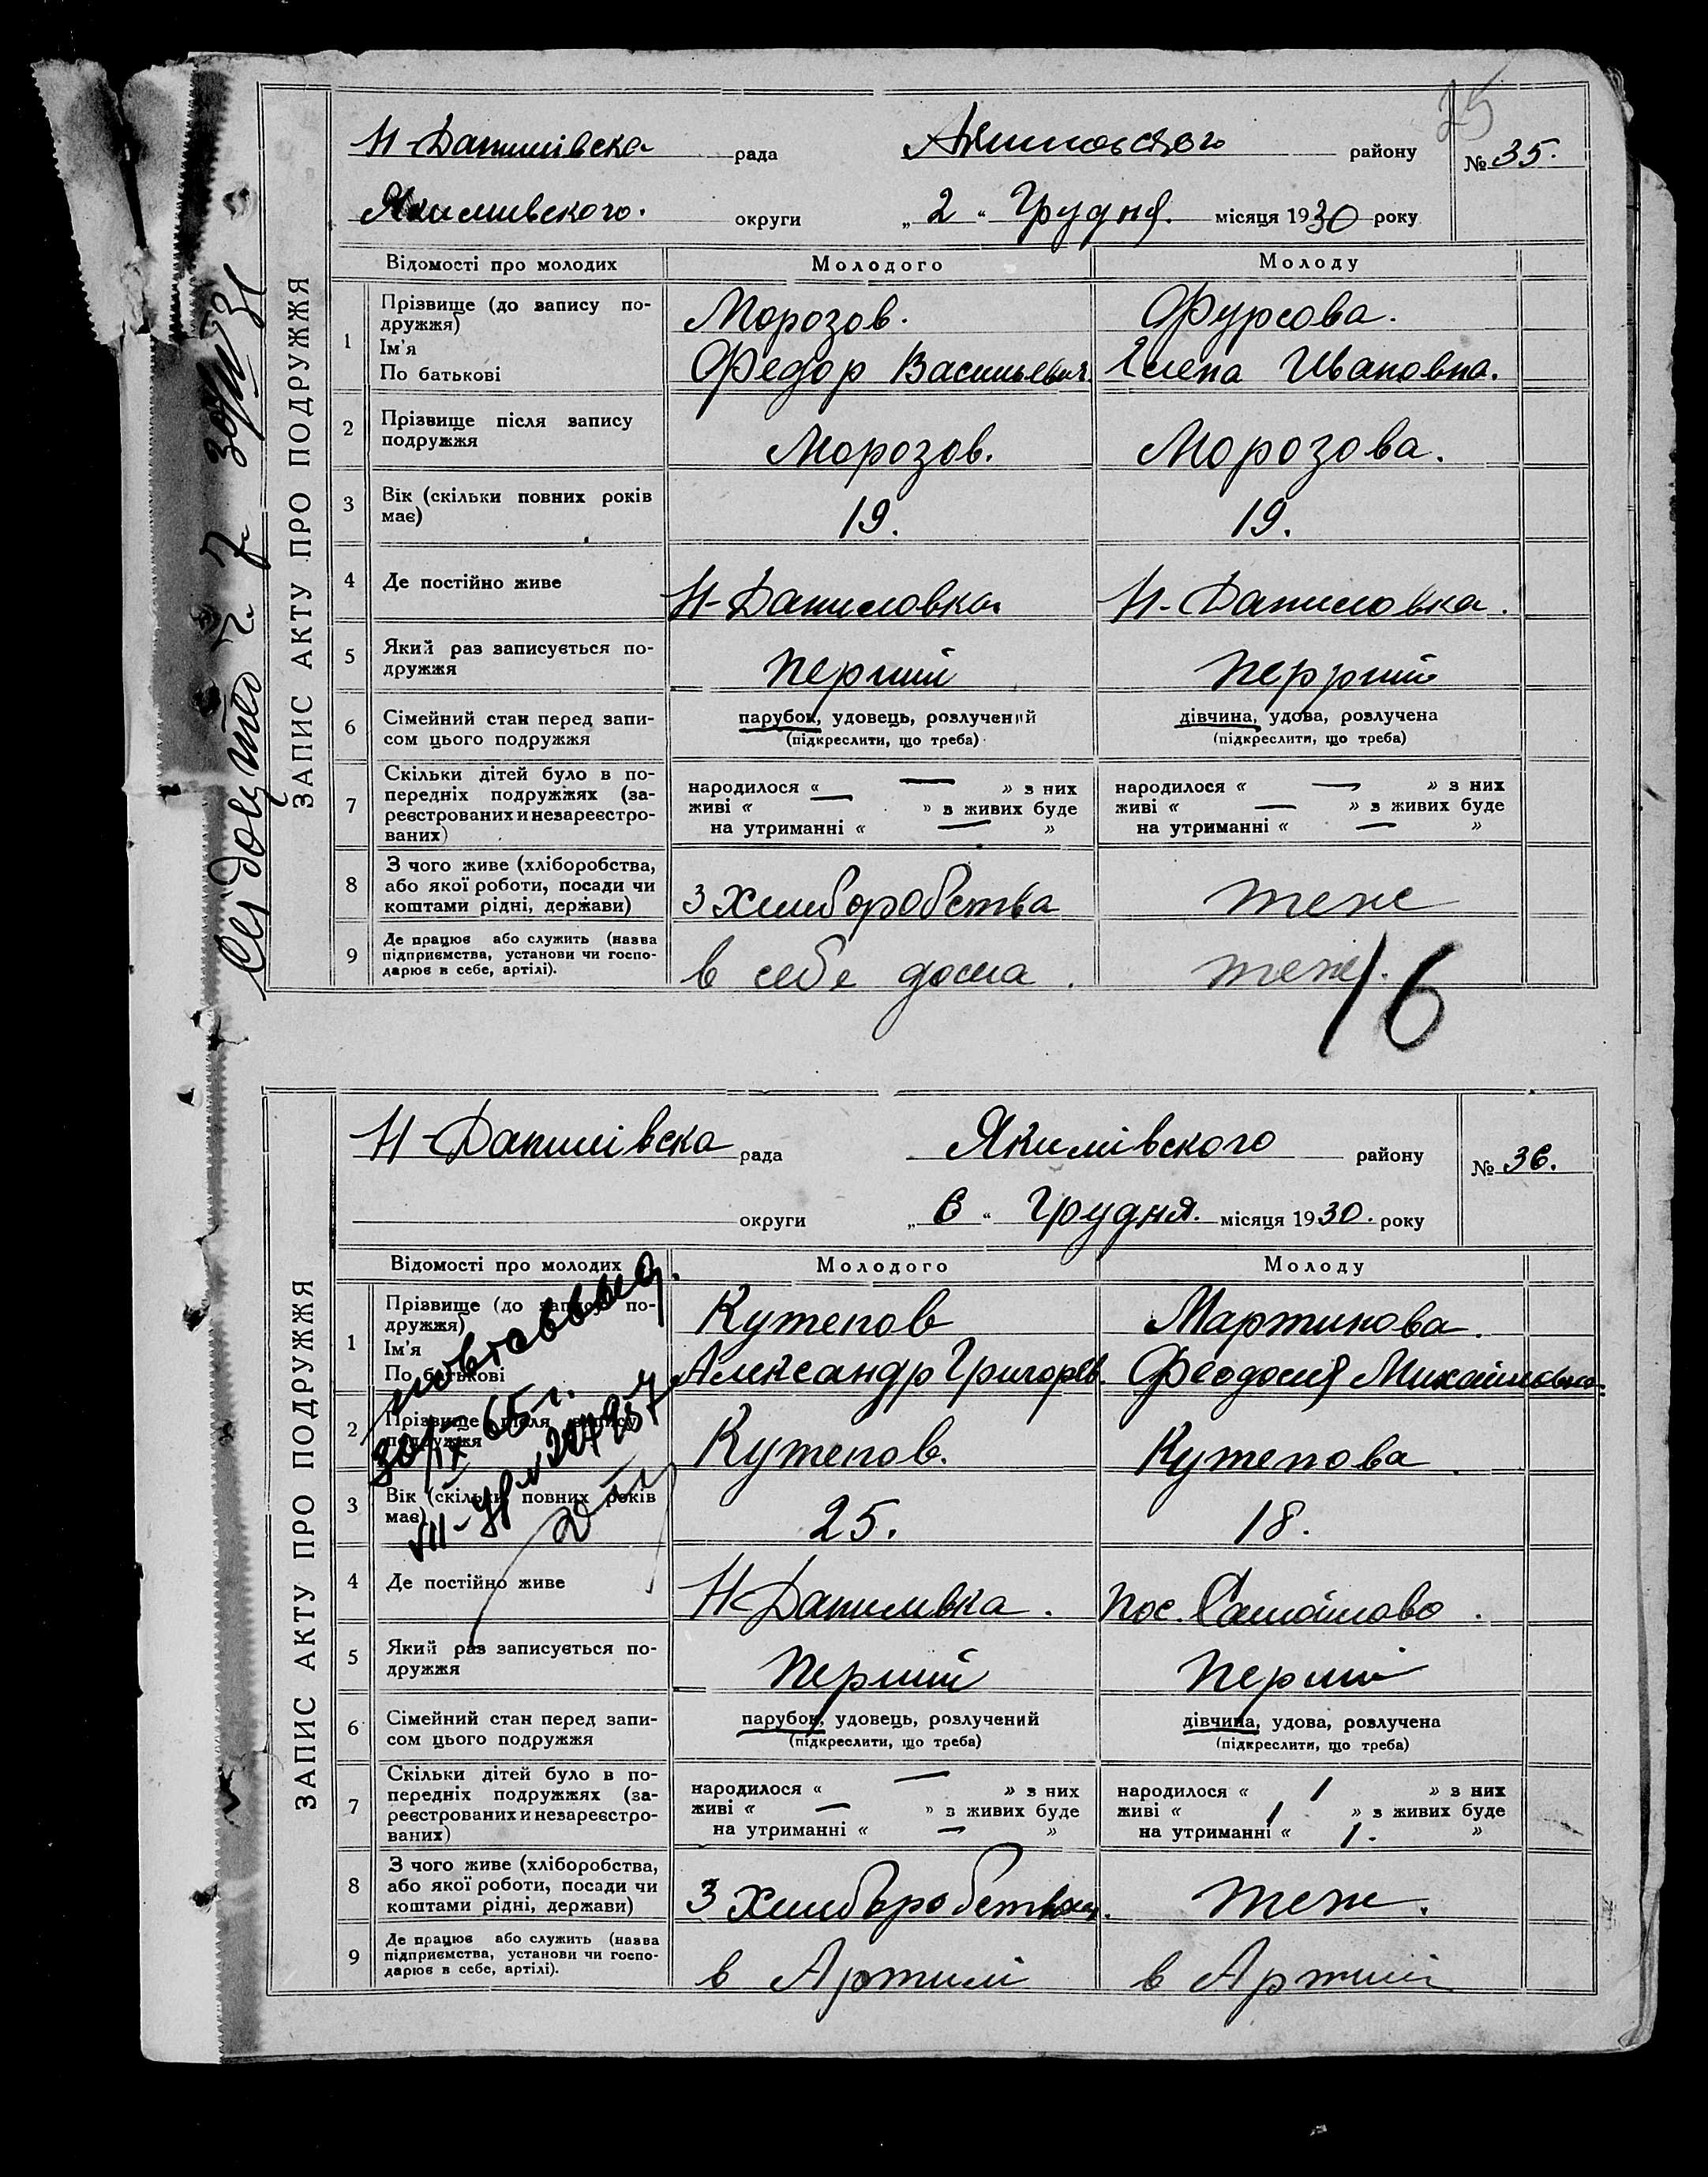 25
Н-Данилівска рада Якимовского району № 35.
Якимивского. округи „2“ Грудня. місяця 1930 року
ЗАПИС АКТУ ПРО ПОДРУЖЖЯ
Відомості про молодих Молодого Молоду
1 Прізвище (до запису по-
дружжя) Морозов. Фурсова.
Ім'я
По батькові Федор Васильевич. Елена Ивановна.
2 Прізвище після запису
подружжя Морозов. Морозова.
3 Вік (скільки повних років
має) 19. 19.
4 Де постійно живе Н-Даниловка Н-Даниловка.
5 Який раз записується по-
дружжя перший перрший
6 Сімейний стан перед запи-
сом цього подружжя
парубок, удовець, розлучений
(підкреслити, що треба)
дівчина, удова, розлучена
(підкреслити, що треба)
7 Скільки дітей було в по-
передніх подружжях (за-
реєстрованих и незареєстро-
ваних)
народилося « — » з них
живі « — » з живих буде
на утриманні « — »
народилося « — » з них
живі « — » з живих буде
на утриманні « — »
8 З чого живе (хліборобства,
або якої роботи, посади чи
коштами рідні, держави) з Хлиборобства теж
9 Де працює або служить (назва
підприємства, установи чи госпо-
дарює в себе, артілі). в себе дома. теж.
16
Н-Данилівска рада Якимівского району № 36.
округи „6“ Грудня. місяця 1930. року
ЗАПИС АКТУ ПРО ПОДРУЖЖЯ
Відомості про молодих Молодого Молоду
1 Прізвище (до запису по-
дружжя) Кутепов Мартинова.
Ім'я
По батькові Александр Григорев. Феодосия Михайловна.
2 Прізвище після запису
подружжя Кутепов. Кутепова
3 Вік (скільки повних років
має) 25. 18.
4 Де постійно живе Н-Данилвка. пос.
5 Який раз записується по-
дружжя перший перший
6 Сімейний стан перед запи-
сом цього подружжя
парубок, удовець, розлучений
(підкреслити, що треба)
дівчина, удова, розлучена
(підкреслити, що треба)
7 Скільки дітей було в по-
передніх подружжях (за-
реєстрованих и незареєстро-
ваних)
народилося « — » з них
живі « — » з живих буде
на утриманні « — »
народилося « 1 » з них
живі « 1 » з живих буде
на утриманні « 1. »
8 З чого живе (хліборобства,
або якої роботи, посади чи
коштами рідні, держави) З Хлиборобства. теж.
9 Де працює або служить (назва
підприємства, установи чи госпо-
дарює в себе, артілі). в Артилі в Артилі